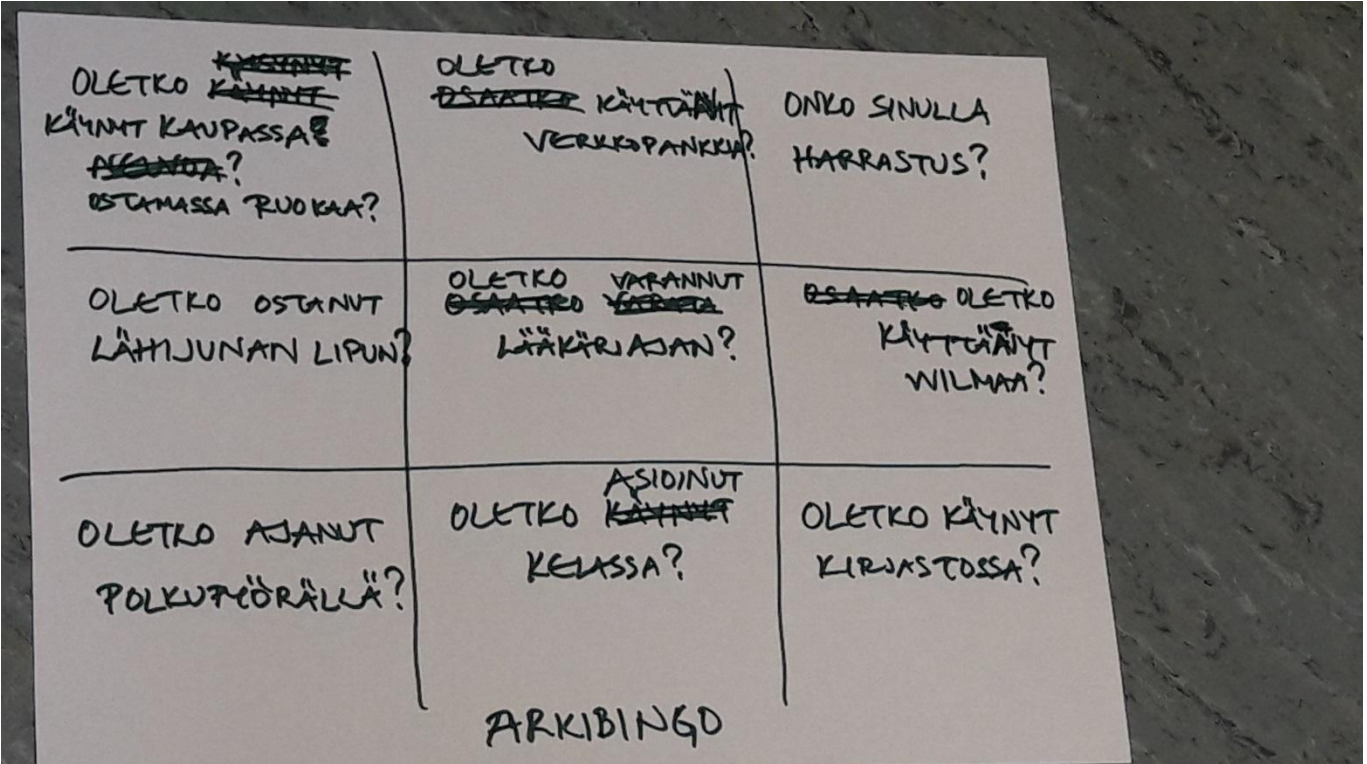 OLETKO
KÄYNYT KAUPASSA?
?
OSTAMASSA RUOKAA?
OLETKO
KÄYTTÄNYT
VERKKOPANKKIA?
ONKO SINULLA
HARRASTUS?
OLETKO OSTANUT
LÄHIJUNAN LIPUN?
OLETKO VARANNUT
OSAATKO VARATA
LÄÄKÄRIAJAN?
OSAATKO OLETKO
KÄYTTÄNYT
WILMAA?
OLETKO AJANUT
POLKUPYÖRÄLLÄ?
ASIOINUT
OLETKO KÄYNYT
KELASSA?
OLETKO KÄYNYT
KIRJASTOSSA?
ARKIBINGO